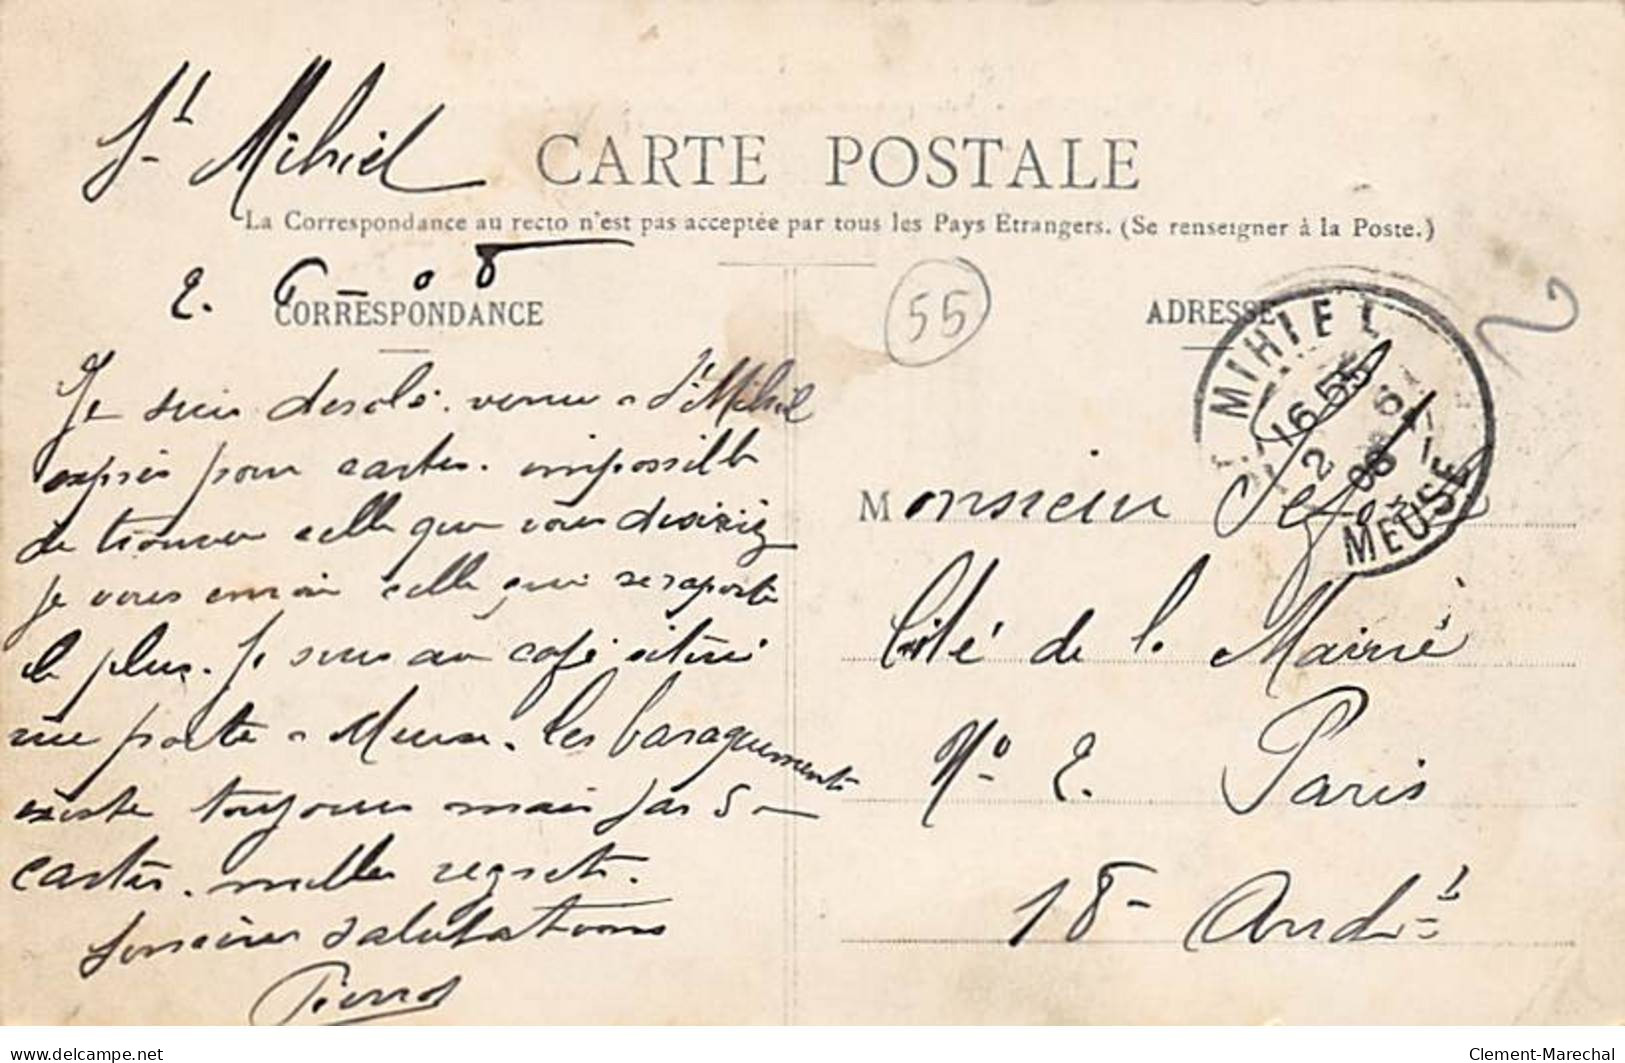 St Mihiel
CARTE POSTALE
La Correspondance au recto n'est pas acceptée par tous les Pays Etrangers. (Se renseigner à la Poste.)
2. 6 - 08
CORRESPONDANCE
Je suis desolé. venu a St Mihiel
exprès pour cartes. impossible
de trouver celle que vous desiriez
je vous envoie celle qui se raporte
le plus. Je suis au café situé
porte a Meuse. les baraquements
existe toujours mais pas s
cartes. mille regrets.
Sincères salutations
Pierrot
55
ADRESSE
2
St MIHIEL
16 55
2 6
08
MEUSE
Monsieur
Cité de la Mairie
No 2. Paris
18 - Arrdt
delcampe.net
Clement-Marechal